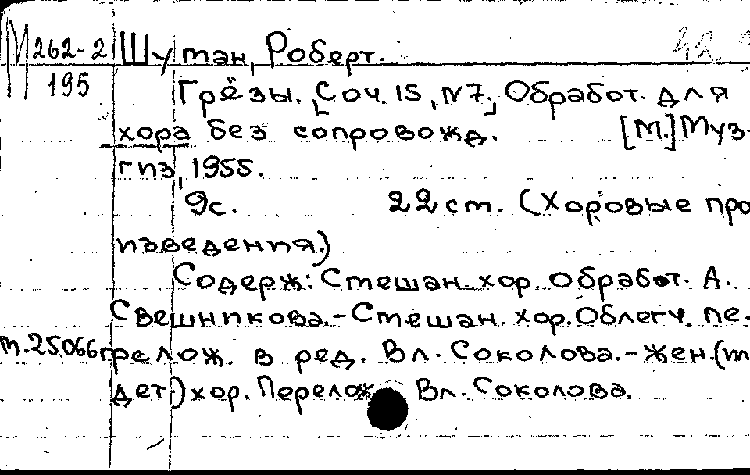 М262-2 Шуман, Роберт.
195
Грёзы. [Соч. 15, №7.] Обработ. для
хора без сопровожд. [М.] Муз-
гиз, 1955.
9с. 22 ст. (Хоровые про
изведения.)
Содерж: Смешан. хор. Обработ. А.
Свешникова.-Смешан. хор. Облегч. пе-
т.25.066 релож. в ред. Вл. Соколова.-Жен.(и
дет.) хор. Перелож. Вл. Соколова.